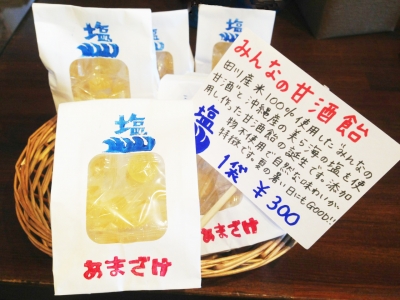 塩
塩
あまざけ
あまざけ
みんなの甘酒飴
田川産米100%使用した"みんなの
甘酒"と沖縄産の美ら海の塩を使
用し作った甘酒飴の誕生です。添加
物不使用で自然な味わいが
特徴です。夏の暑い日にもGOOD!!
1袋 ¥300